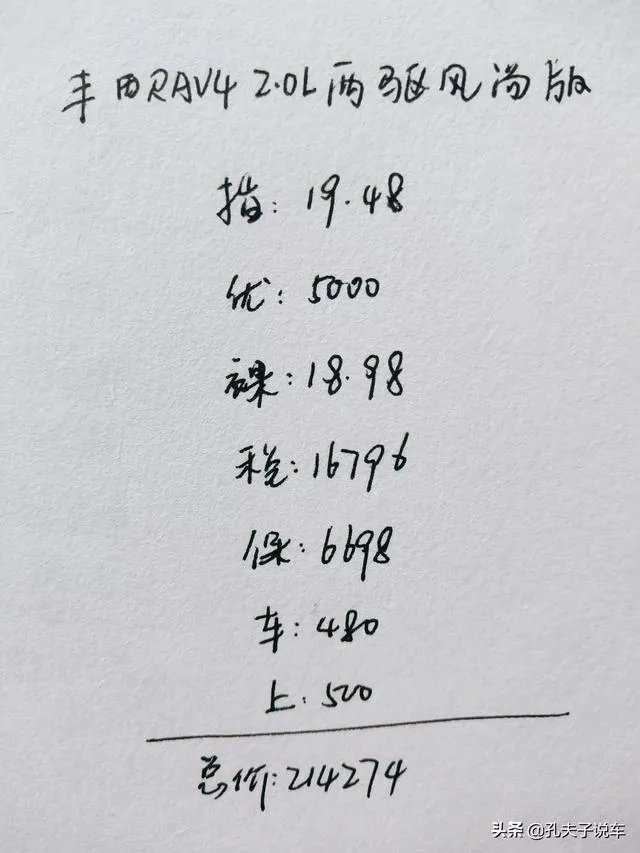 丰田RAV4 2.0L两驱风尚版
指: 19.48
优: 5000
裸: 18.98
税: 16796
保: 6698
车: 480
上: 500
总价: 214274
头条 @孔夫子说车